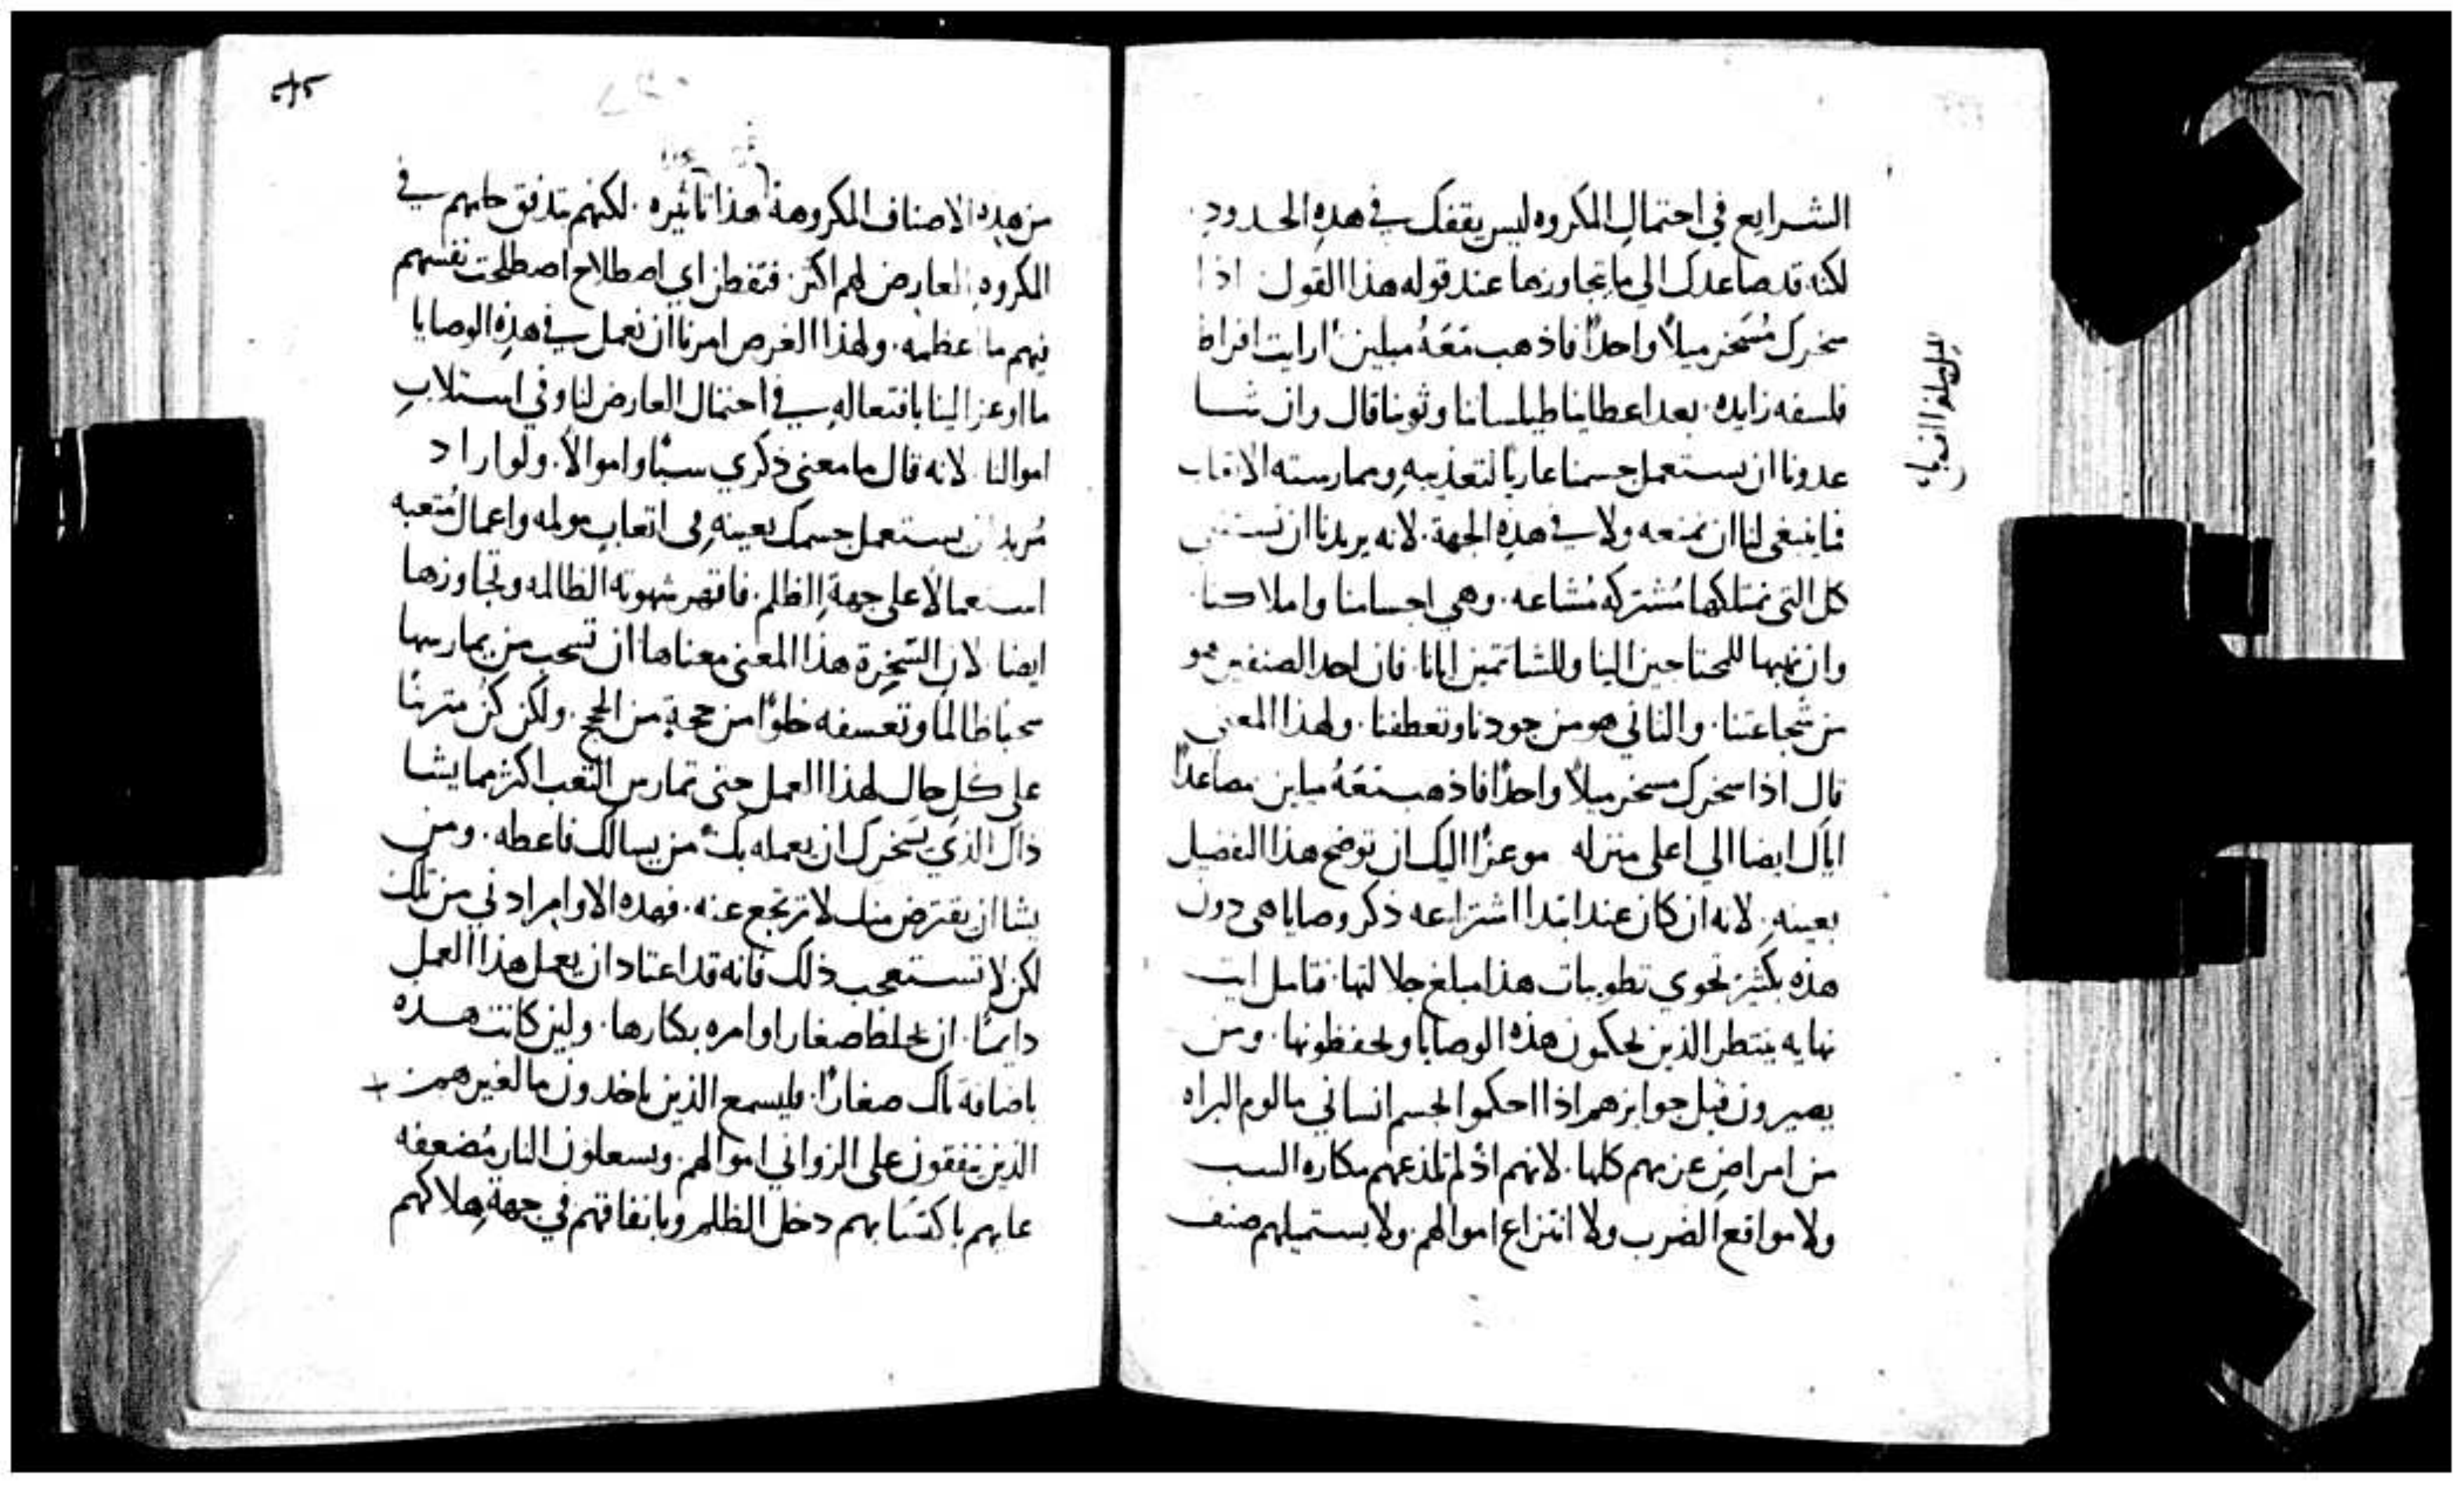 الشرايع في احتمال المكروه ليس يقفك في هذه الحدود.
لكنه قد صاعدك الي ما تجاوزها عند قوله هذا القول اذا
سخرك مُسَخر ميلاً واحدًا فاذهب مَعَهُ ميلين. ارايت افراط
فلسفه زايده. بعد اعطاينا طيلساننا وثوبنا قال وان شا
عدونا ان يستعمل جسمنا عاريًا لتعذيبهِ وممارسته الاتعاب
فما ينبغي لنا ان نمنعه ولا في هذهِ الجهة. لانه يريدنا ان نستقني
كل التي نمتلكها مُشتركه مُشاعه. وهي اجسامنا واملاكنا.
وان نهبها للمحتاجين الينا وللشاتمين ايانا. فان احد الصنفين هو
من شجاعتنا. والثاني هو من جودنا وتعطفنا. ولهذا المعني
قال اذا سخرك مسخر ميلاً واحدًا فاذهب مَعَهُ ميلين مصاعدًا
اياك ايضا الي اعلي منزله موعزًا اليك ان توضح هذا التفضيل
بعينهِ. لانه ان كان عند ابتدا اشتراعه ذكر وصايا هي دون
هذه بكثيرٍ تحوي تطويبات هذا مبلغ جلالتها. فتامل ايت
نهايه ينتظر الذين يحكمون هذه الوصايا ويحفظونها. ومن
يصيرون قبل جوايزهم اذا احكموا لجسم انساني مالوم البراه
من امراضٍ عزمهم كلها. لانهم اذ لم تلذعهم مكاره السب
ولا مواقع الضرب ولا انتزاع اموالهم. ولا يستميلهم صنف
من هذهِ الاصناف المكروهة هذا تاثيره. لكنهم تدفق حلمهم في
المكروهِ العارض لهم اكثر. فتفطن اي اصطلاح اصطلحت نفسهم
فيهم ما اعظمه. ولهذا الغرض امرنا ان نعمل في هذهِ الوصايا
ما اوعز الينا بافتعالهِ في احتمال العارض لنا وفي استلابِ
اموالنا. لانه قال ما معني ذكري سبًا واموالاً. ولو اراد
مُريد ان يستعمل جسمك بعينهِ في اتعابٍ مولمه واعمال مُتعبه
استعمالاً علي جهةِ الظلم. فاقهر شهوته الظالمه وتجاوزها
ايضا. لان السّخِرة هذا المعني معناها ان تسحب من يمارسها
سحبا ظالما وتعسفه خلوًا من حجةٍ من الحجج. ولكن كن مترتبًا
علي كل حال لهذا العمل حتي تمارس التعب اكثر مما يشا
ذاك الذي يسَخرك ان يعمله بك. من يسالك فاعطه. ومن
يشا ان يقترض منك لا ترتجع عنه. فهذه الاوامر ادني من تلك
لكن لا تستعجب ذلك فانه قد اعتاد ان يعمل هذا العمل
دايمًا. ان يخلط صغار اوامره بكبارها. ولين كانت هذه
باضافة تلك صغارًا. فليسمع الذين ياخذون ما لغيرهم
الذين ينفقون علي الزواني اموالهم. ويشعلون النار مُضعفه
عليهم باكتسَابهم دخل الظلم وبانفاقهم في جهةِ هلاكهم